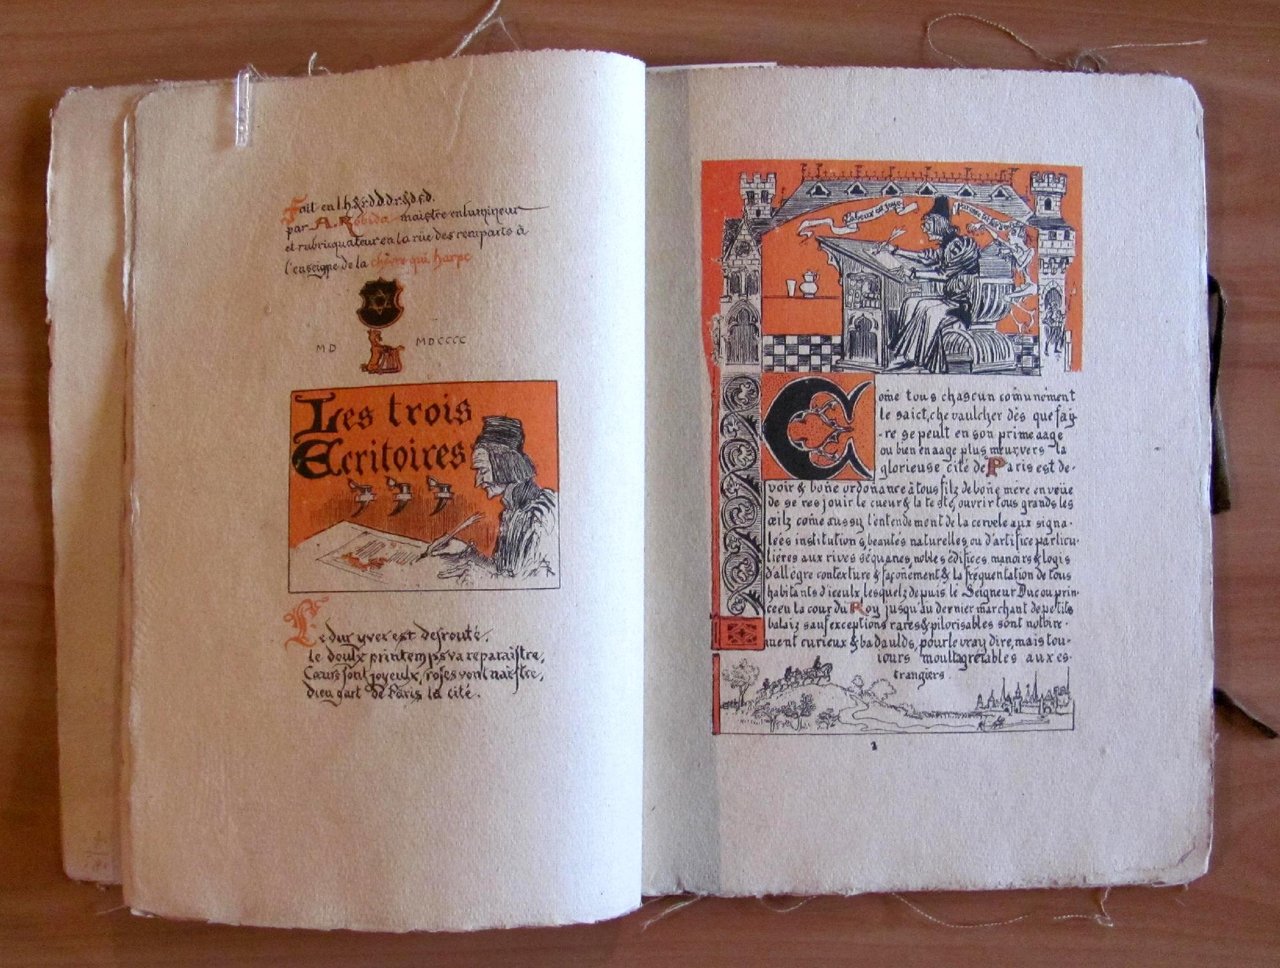 Fait en
par A. Robida maistre enlumineur
et rubriquateur en la rüe des remparts à
l'enseigne de la chèvre qui harpe
MD MDCCCC
Les trois
Ecritoires
AR
Le dur yver est desrouté,
le doulx printemps va reparaistre,
Cœurs sont joyeulx, roses vont naistre,
dieu gart de Paris la cité.
Labeur est joye
Cõme tous chascun comũnément
le saict, chevaulcher dès que fay-
-re se peult en son prime aage
ou bien en aage plus meur, vers la
glorieuse cité de Paris est de-
voir & boñe ordonance à tous filz de boñe mère en veüe
de se resjouir le cueur & la teste, ouvrir tous grands les
œilz cõme aussy l'entendement de la cervele aux signa-
lées institutions, beautés naturelles, ou d'artifice particu-
lières aux rives séquanes, nobles édifices manoirs & logis
d'allègre contexture & façoñement & la fréquentation de tous
habitants d'iceulx lesquelz depuis le Seigneur Duc ou prin-
ce en la cour du Roy jusqu'au dernier marchant de petits
balaiz sauf exceptions rares & pilorisables sont notoire-
ment curieux & badaulds, pour le vray dire, mais tou-
iours moult agréables aux es-
trangiers.
1